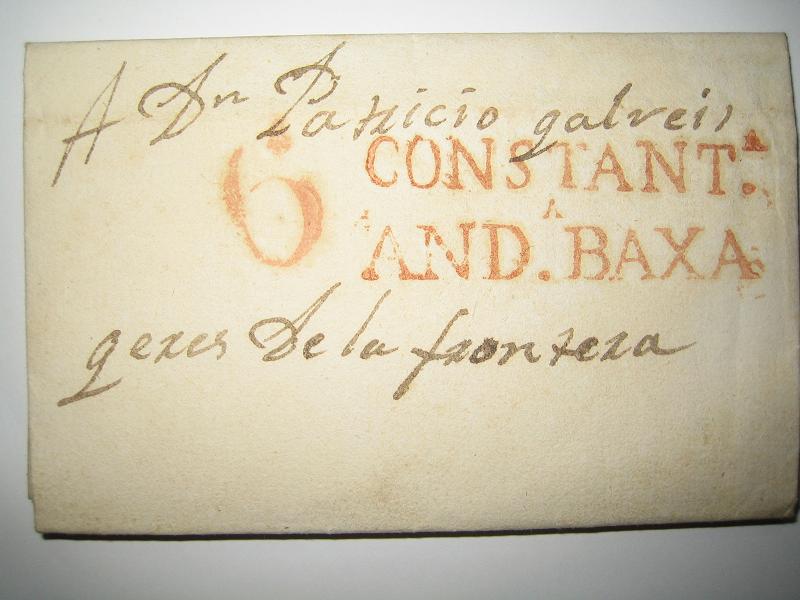 A Dn Patricio galveis
6 CONSTANT.A
AND.A BAXA
geres De la frontera